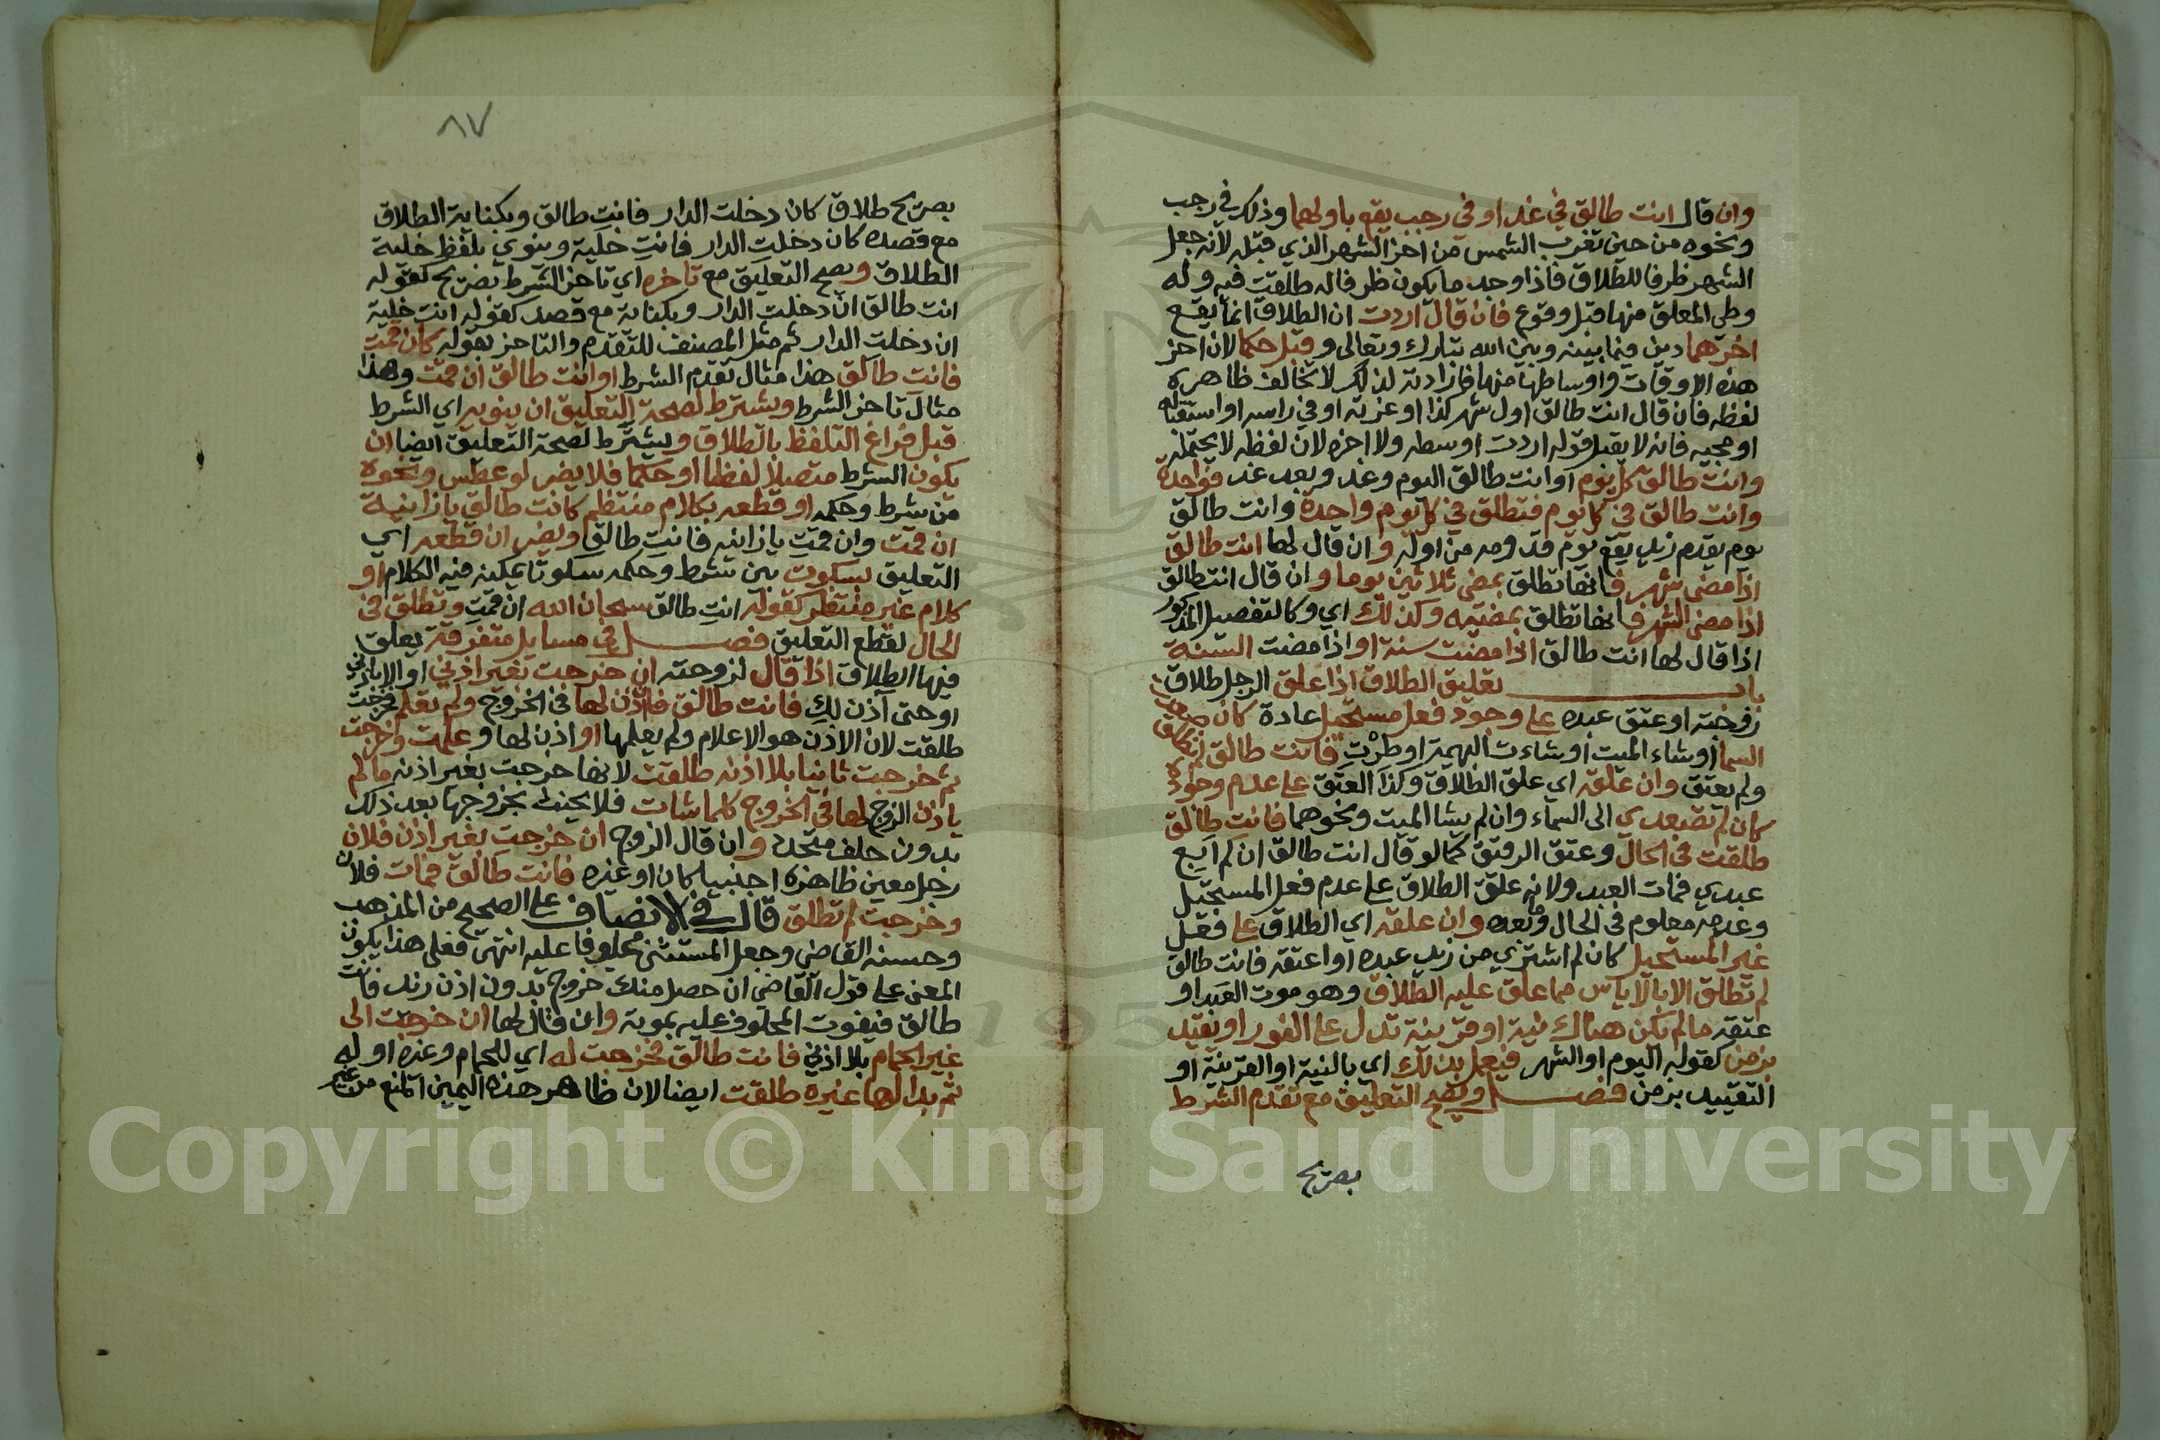 وان قال انت طالق في غد او في رجب يقع باولهما وذلك في رجب
ونحوه من حين تغرب الشمس من اخر الشهر الذي قبله لانه جعل
الشهر ظرفا للطلاق فاذا وجد ما يكون ظرفا له طلقت فيه وله
وطي المعلق منها قبل وقوع فان قال اردت ان الطلاق انما يقع
اخرهما دين فيما بينه وبين الله تبارك وتعالى وقبل حكما لان اخر
هذه الاوقات واوساطها منها فارادته لذلك لا يخالف ظاهره
لفظه فان قال انت طالق اول شهر كذا او غرته او في راسه او استقباله
او مجيه فانه لا يقبل قوله اردت اوسطه ولا اخره لان لفظه لا يحتمله
وانت طالق كل يوم او انت طالق اليوم وغد وبعد غد فواحدة
وانت طالق في كل يوم فتطلق في كل يوم واحدة وانت طالق
يوم يقدم زيد يقع يوم قدومه من اوله وان قال لها انت طالق
اذا مضى شهر فانها تطلق بمضي ثلاثين يوما وان قال انت طالق
اذا مضى الشهر فانها تطلق بمضيه وكذلك اي وكالتفصيل المذكور
اذا قال لها انت طالق اذا مضت سنة او اذا مضت السنة
باب تعليق الطلاق اذا علق الرجل طلاق
زوجته او عتق عبده على وجود فعل مستحيل عادة كان صعدت
السما او شاء الميت او شاءت البهيمة او طرت فانت طالق لم تطلق
ولم يعتق وان علقه اي علق الطلاق وكذا العتق على عدم وجوده
كان لم تصعدي الى السماء وان لم يشا الميت ونحوهما فانت طالق
طلقت في الحال وعتق الرقيق كما لو قال انت طالق ان لم ابيع
عبدي فمات العبد ولانه علق الطلاق على عدم فعل المستحيل
وعدمه معلوم في الحال وبعده وان علقه اي الطلاق على فعل
غير المستحيل كان لم اشتري من زيد عبده او اعتقه فانت طالق
لم تطلق الا بالاياس مما علق عليه الطلاق وهو موت العبد او
عتقه ما لم يكن هناك نية او قرينة تدل على الفور او يقيد
بزمن كقوله اليوم او الشهر فيعمل بذلك اي بالنية او القرينة او
التقييد بزمن فصل ويصح التعليق مع تقدم الشرط
بصريح
٨٧
بصريح طلاق كان دخلت الدار فانت طالق وبكناية الطلاق
مع قصده كان دخلت الدار فانت خلية وينوي بلفظ خلية
الطلاق ويصح التعليق مع تاخره اي تاخر الشرط بصريح كقوله
انت طالق ان دخلت الدار وبكناية مع قصد كقوله انت خلية
ان دخلت الدار ثم مثل المصنف للتقدم والتاخر بقوله كان قمت
فانت طالق هذا مثال تقدم الشرط او انت طالق ان قمت وهذا
مثال تاخر الشرط ويشترط لصحة التعليق ان ينويه اي الشرط
قبل فراغ التلفظ بالطلاق ويشترط لصحة التعليق ايضا ان
يكون الشرط متصلا لفظا او حكما فلا يضر لو عطس ونحوه
من شرط وحكمه او قطعه بكلام منتظم كانت طالق يا زانية
ان قمت وان قمت يا زانيه فانت طالق ويضر ان قطعه اي
التعليق بسكوت بين شرط وحكمه سكوتا يمكنه فيه الكلام او
كلام غير منتظم كقوله انت طالق سبحان الله ان قمت وتطلق في
الحال لقطع التعليق فصل في مسايل متفرقة يعلق
فيها الطلاق اذا قال لزوجته ان خرجت بغير اذني او الا باذني
او حتى آذن لك فانت طالق فاذن لها في الخروج ولم تعلم فخرجت
طلقت لان الاذن هو الاعلام ولم يعلمها او اذن لها وعلمت وخرجت
ثم خرجت ثانيا بلا اذنه طلقت لانها خرجت بغير اذنه ما لم
ياذن الزوج لها في الخروج كلما شات فلا يحنث بخروجها بعد ذلك
بدون حلف متجدد وان قال الزوج ان خرجت بغير اذن فلان
رجل معين ظاهره اجنبيا كان او غيره فانت طالق فمات فلان
وخرجت لم تطلق قال في الانصاف على الصحيح من المذهب
وحسنه القاضي وجعل المستثنى محلوفا عليه انتهى فعلى هذا يكون
المعنى على قول القاضي ان حصل منك خروج بدون اذن زيد فانت
طالق فيفوت المحلوف عليه بموته وان قال لها ان خرجت الى
غير الحمام بلا اذني فانت طالق فخرجت له اي للحمام وغيره او له
ثم بدا لها غيره طلقت ايضا لان ظاهر هذه اليمين المنع من غير
Copyright © King Saud University
195